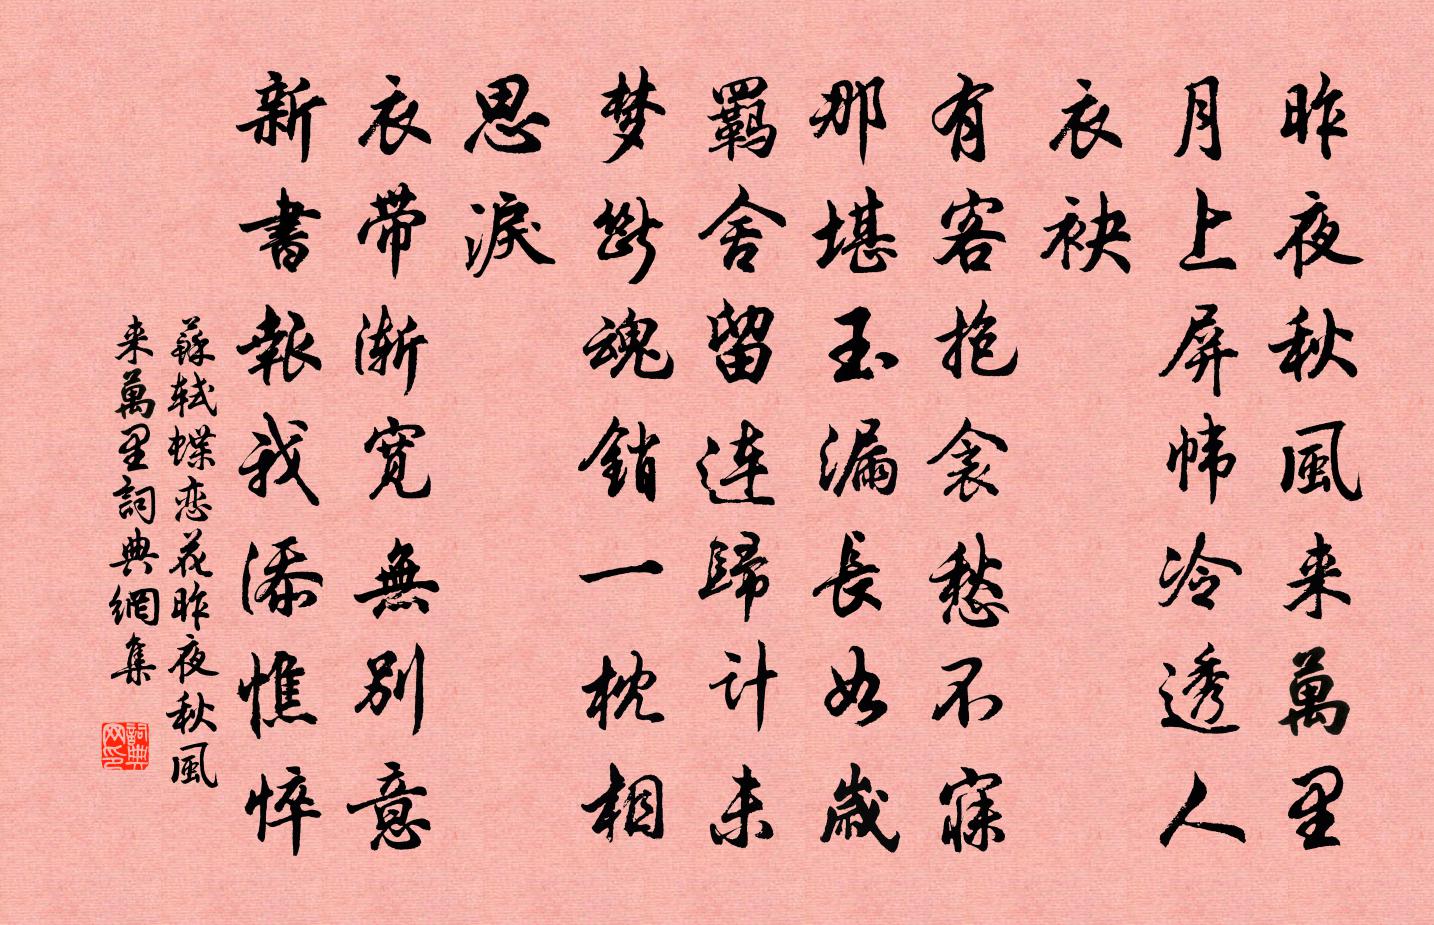 昨夜秋風来萬里
月上屏幃冷透人
衣袂
有客抱衾愁不寐
那堪玉漏長如歲
羈舍留連歸计未
梦斷魂銷一枕相
思淚
衣带漸宽無別意
新書報我添憔悴
蘇轼蝶恋花昨夜秋風
来萬里詞典網集
詞典网印